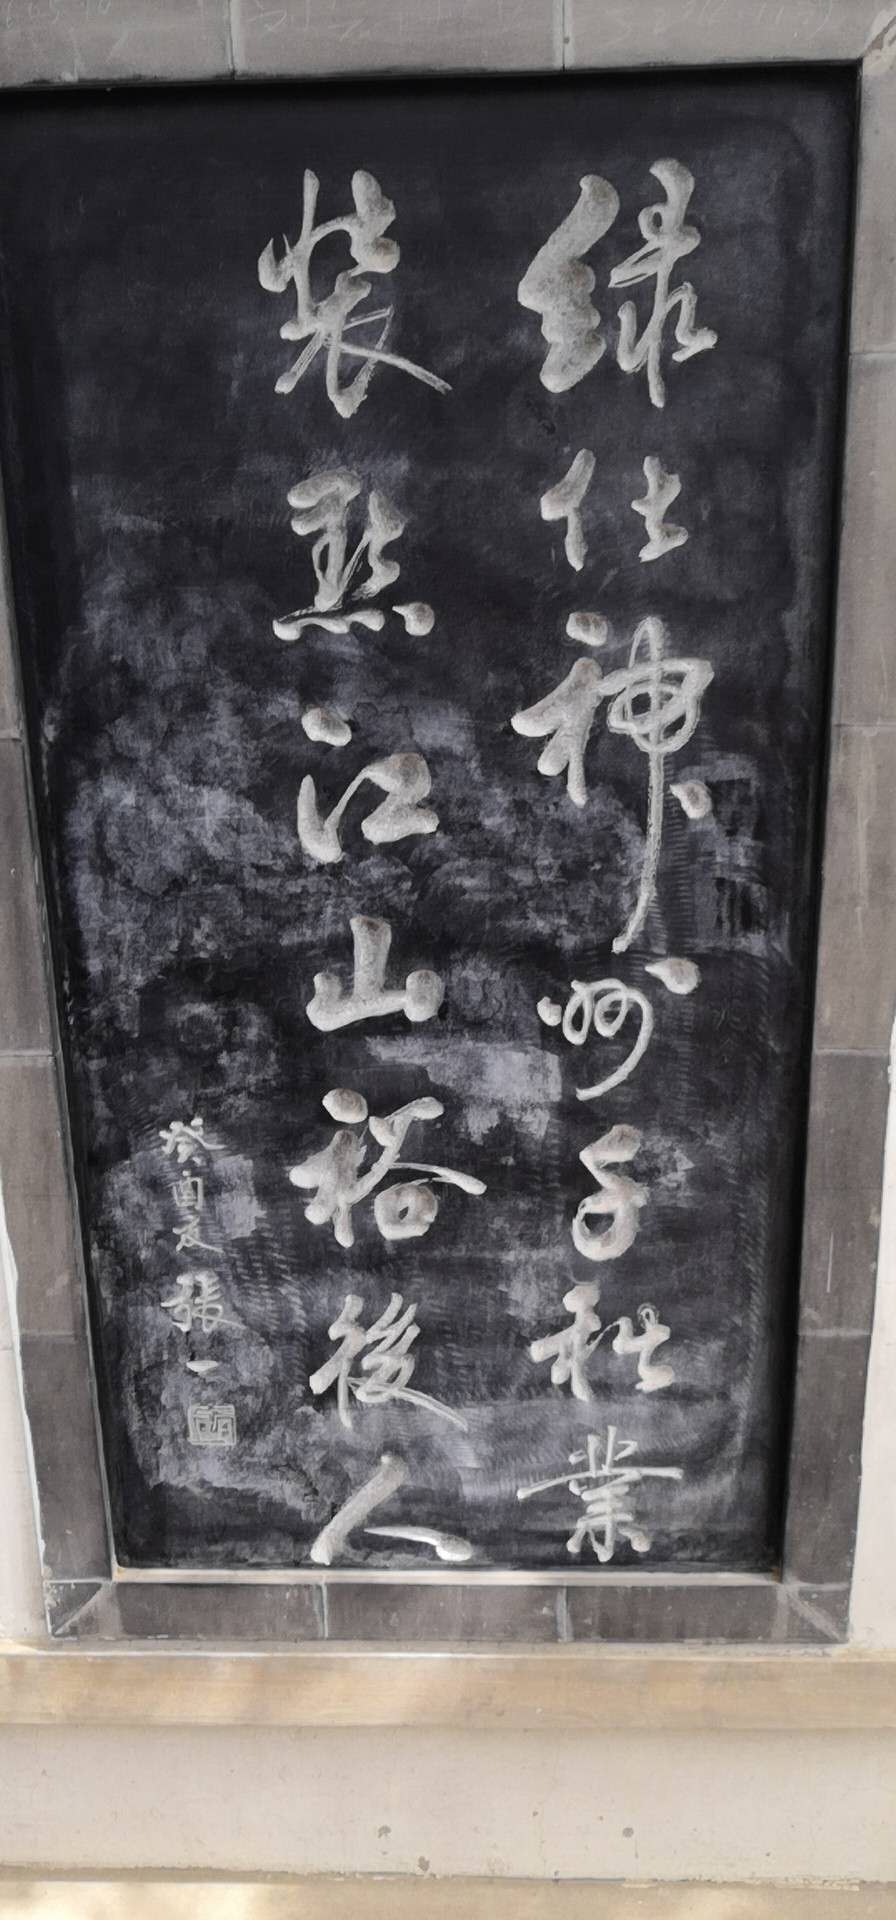 綠化神州千秋業
裝點江山裕後人
癸酉夏 張一